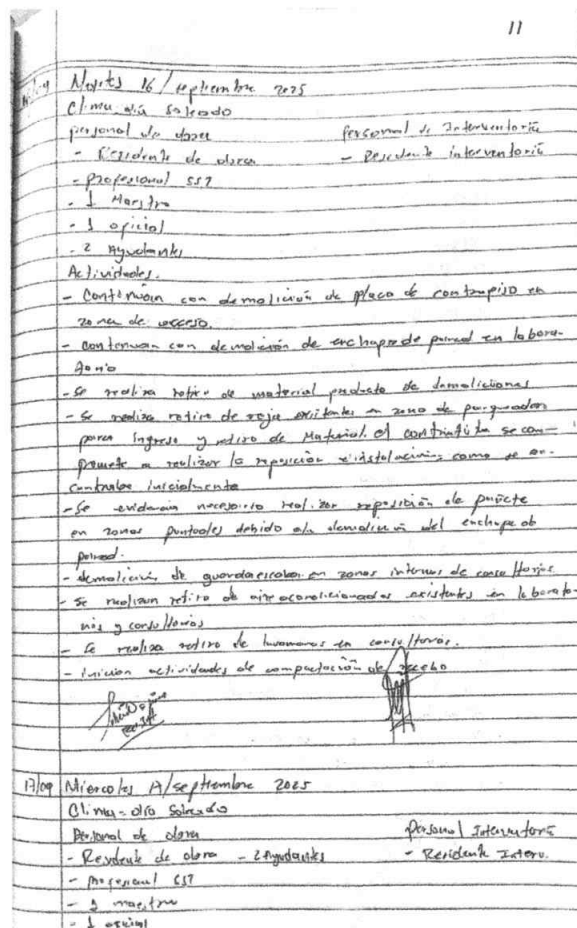 11
16/09 Martes 16/septiembre 2025
Clima: día soleado
personal de obra Personal de Interventoría
- Residente de obra - Residente interventoría
- profesional SST
- 1 Maestro
- 1 oficial
- 2 Ayudantes
Actividades.
- Continuan con demolición de placa de contrapiso en
zona de acceso.
- continuan con demolición de enchape de pared en labora-
torio
- se realiza retiro de material producto de demoliciones
- se realiza retiro de reja existentes en zona de parqueadero
para ingreso y retiro de Material. el contratista se com-
promete a realizar la reposición e instalación como se en-
contraba inicialmente
- Se evidencia necesario realizar reposición de pañete
en zonas puntuales debido a la demolición del enchape de
pared.
- demolición de guardaescobas en zonas internas de consultorios
- se realizan retiro de aire acondicionados existentes en laborato-
rios y consultorios
- Se realiza retiro de lavamanos en consultorios.
- inician actividades de compactación de recebo
17/09 Miercoles 17/septiembre 2025
Clima - día Soleado
Personal de obra Personal Interventoría
- Residente de obra - 2 Ayudantes - Residente Interv.
- profesional SST
- 1 maestro
- 1 oficial